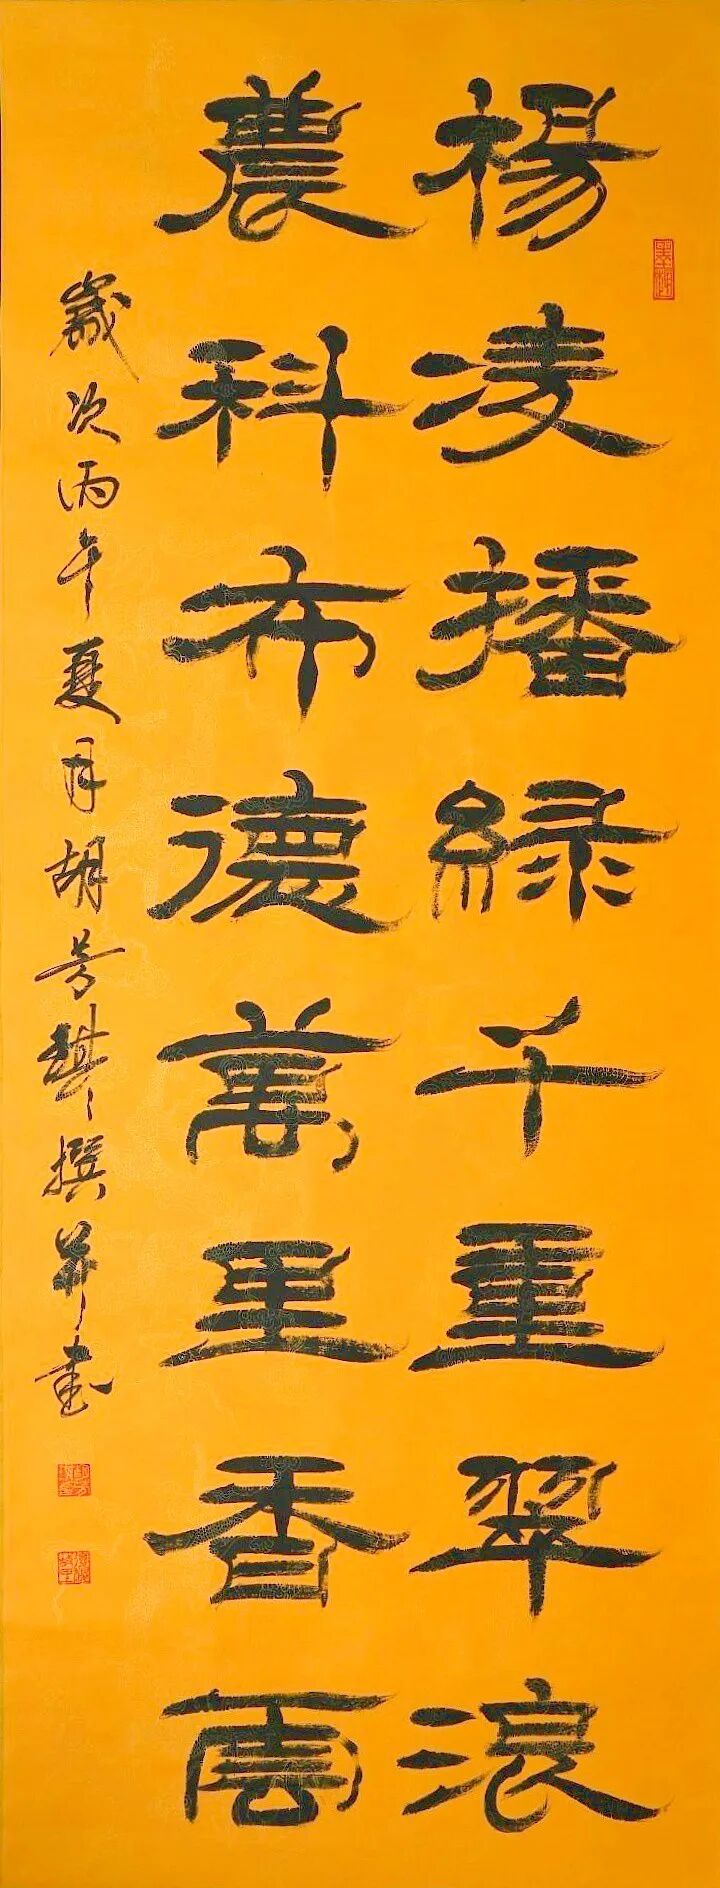 楊凌播綠千重翠浪
農科布德萬里香雲
歲次丙午夏月胡芳撰并書